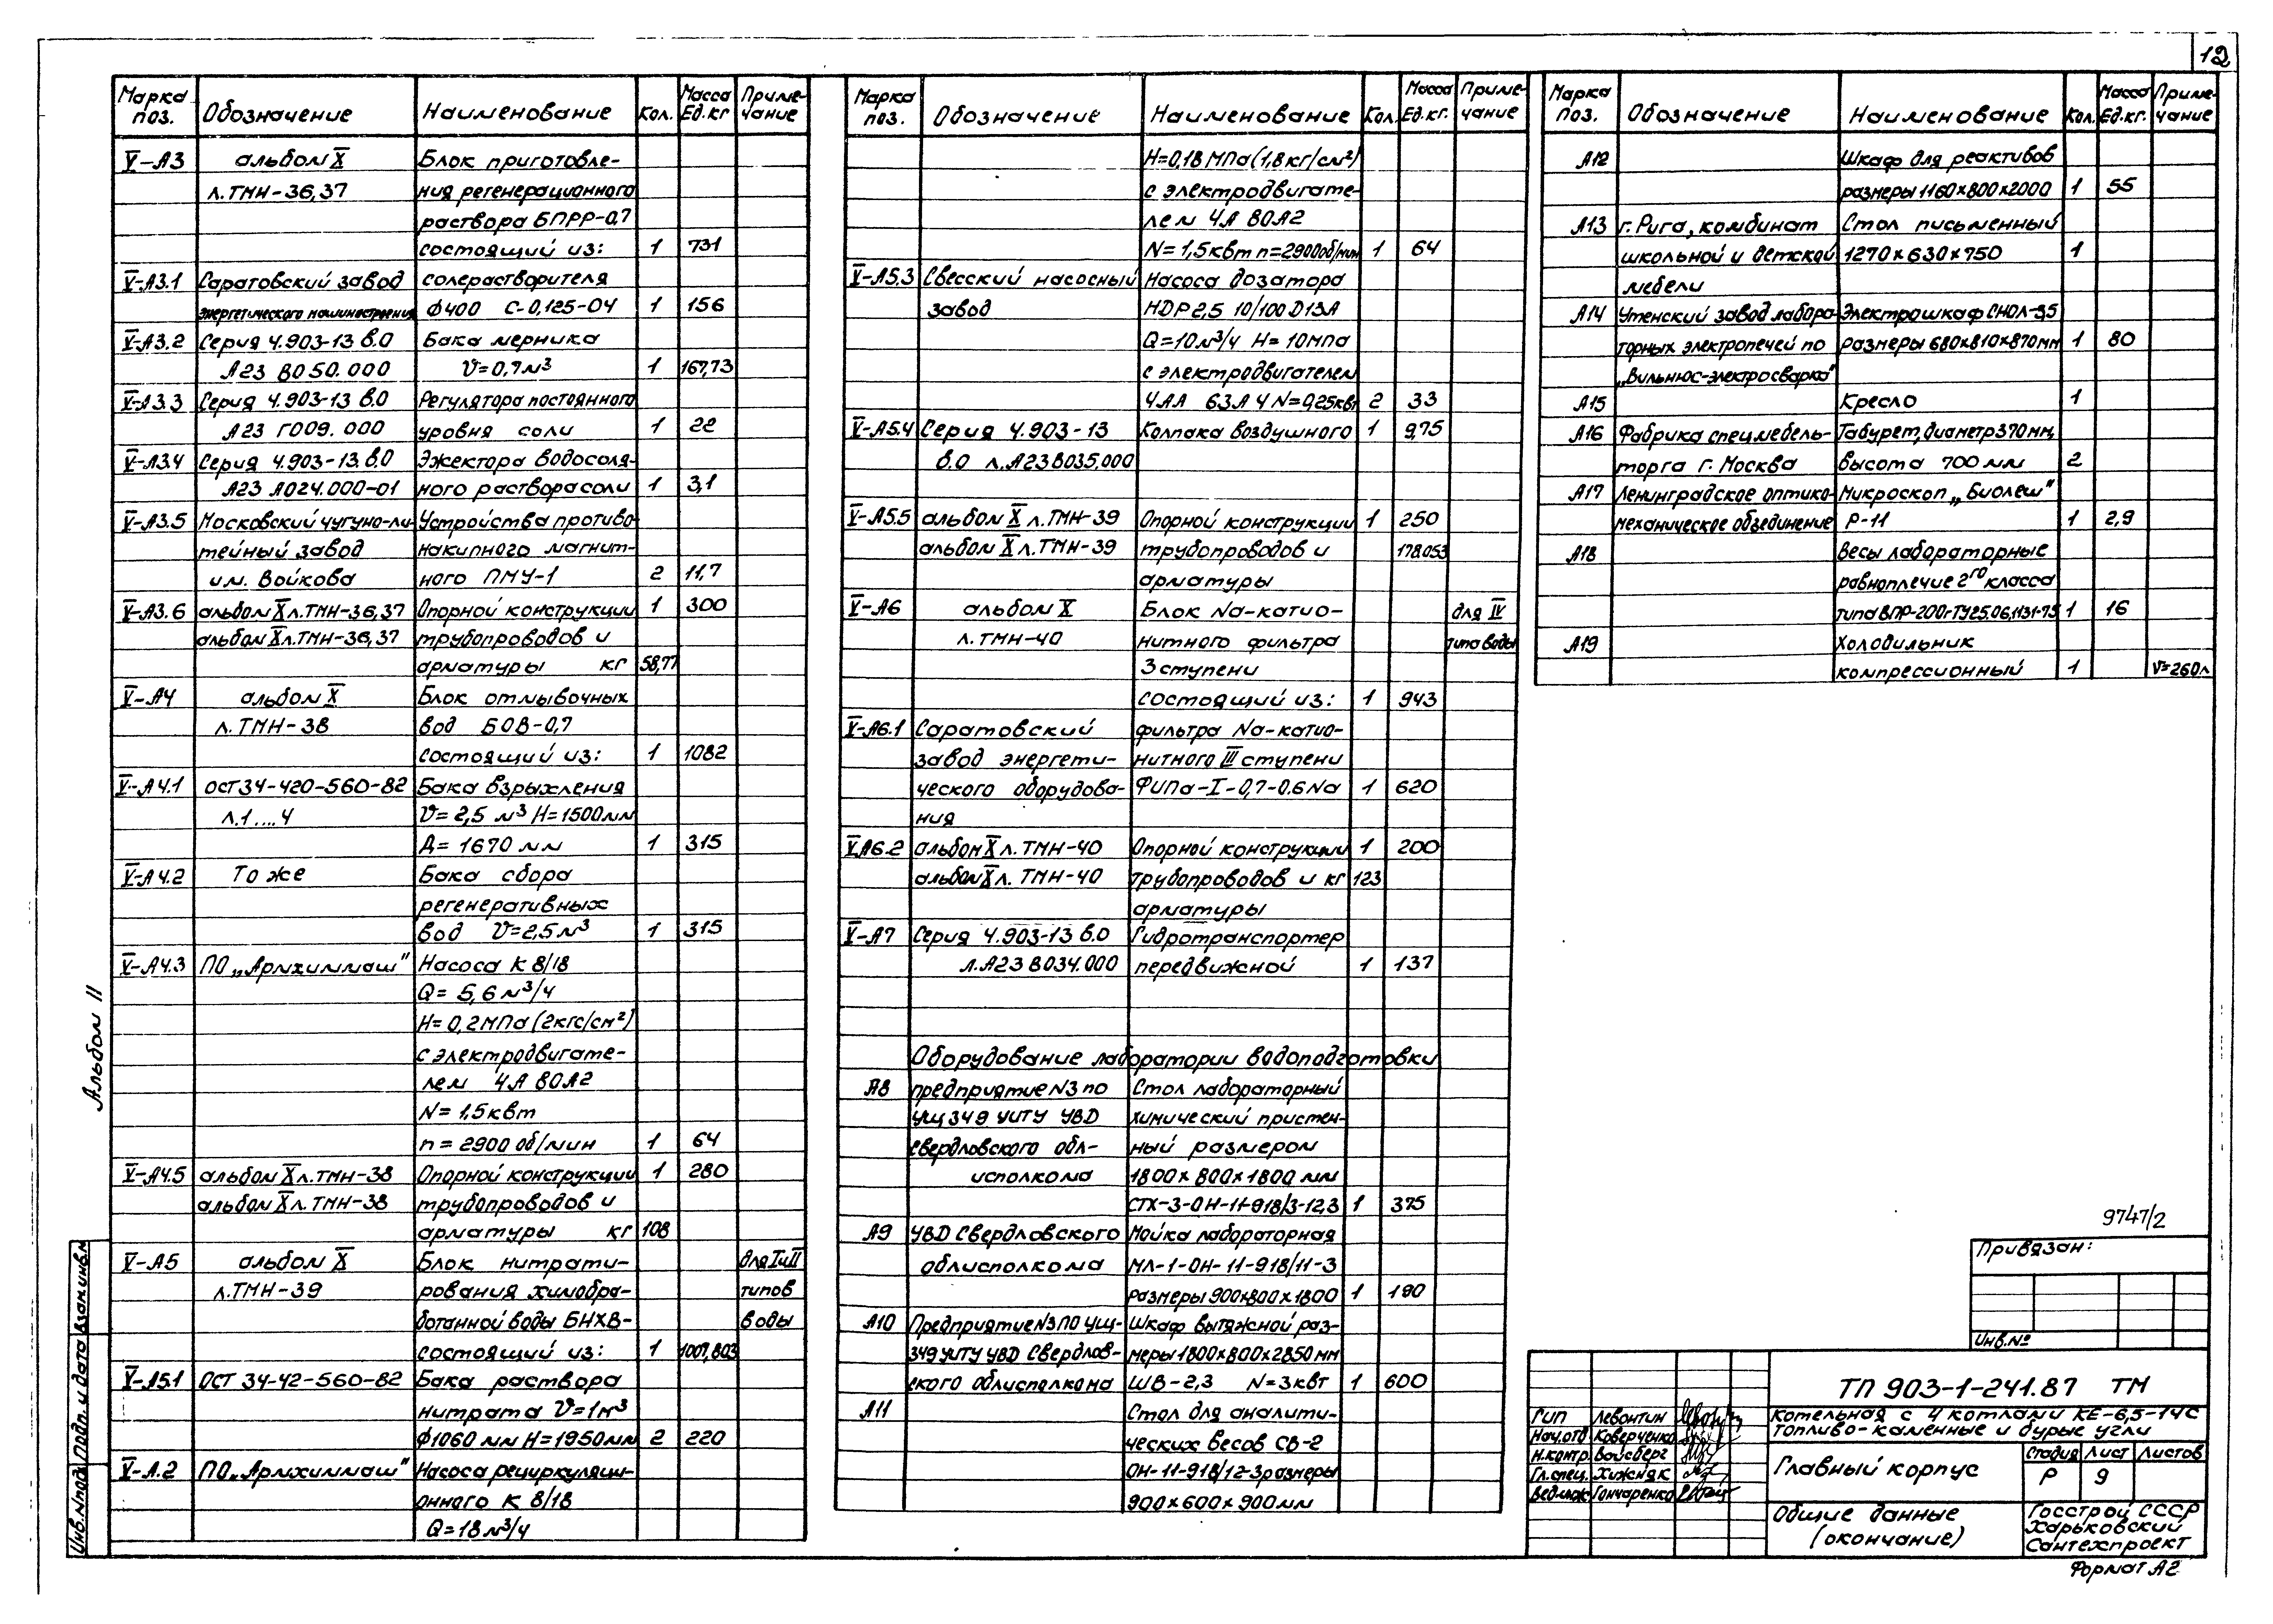 12
Марка поз. Обозначение Наименование Кол. Масса Ед.кг Приме-чание
V-А3 альбом X Блок приготовле-
л.ТМН-36,37 ния регенерационного
раствора БПРР-0,7
состоящий из: 1 731
V-А3.1 Саратовский завод солерастворителя
энергетического машиностроения Ф400 С-0,125-04 1 156
V-А3.2 Серия 4.903-13 в.0 Бака мерника
А23 В050.000 V=0,7м³ 1 167,73
V-А3.3 Серия 4.903-13 в.0 Регулятора постоянного
А23 Г009.000 уровня соли 1 22
V-А3.4 Серия 4.903-13.в.0 Эжектора водосоля-
А23 А024.000-01 ного раствора соли 1 3,1
V-А3.5 Московский чугуно-ли- Устройства противо-
тейный завод накипного магнит-
им. Войкова ного ПМУ-1 2 11,7
V-А3.6 альбом X л.ТМН-36,37 Опорной конструкции 1 300
альбом X л.ТМН-36,37 трубопроводов и
арматуры кг 58,77
V-А4 альбом X Блок отмывочных
л.ТМН-38 вод БОВ-0,7
состоящий из: 1 1082
V-А4.1 ОСТ34-420-560-82 Бака взрыхления
л.1....4 V=2,5 м³ Н=1500мм
Д=1670 мм 1 315
V-А4.2 То же Бака сбора
регенеративных
вод V=2,5м³ 1 315
V-А4.3 ПО „Армхиммаш" Насоса К 8/18
Q= 5,6 м³/ч
Н= 0,2МПа (2кгс/см²)
с электродвигате-
лем 4А 80А2
N= 1,5квт
n= 2900 об/мин 1 64
V-А4.5 альбом X л.ТМН-38 Опорной конструкции 1 280
альбом X л.ТМН-38 трубопроводов и
арматуры кг 108
V-А5 альбом X Блок нитрати- для I и II
л.ТМН-39 рования химобра- типов
ботанной воды БНХВ- воды
состоящий из: 1 1007,803
V-А5.1 ОСТ 34-42-560-82 Бака раствора
нитрата V=1м³
Ф1060 мм Н=1950мм 2 220
V-А.2 ПО „Армхиммаш" Насоса рециркуляци-
онного К 8/18
Q=18 м³/ч
Марка поз. Обозначение Наименование Кол. Масса Ед.кг. Приме-чание
Н=0,18 МПа (1,8 кг/см²)
с электродвигате-
лем 4А 80А2
N=1,5квт n=2900об/мин 1 64
V-А5.3 Свесский насосный Насоса дозатора
завод НДР2,5 10/100 Д13А
Q=10м³/ч Н=10мпа
с электродвигателем
4АА 63А 4 N=0,25квт 2 33
V-А5.4 Серия 4.903-13 Колпака воздушного 1 9,75
в.0 л.А23В035.000
V-А5.5 альбом X л.ТМН-39 Опорной конструкции 1 250
альбом X л.ТМН-39 трубопроводов и 178,053
арматуры
V-А6 альбом X Блок Na-катио- для IV
л.ТМН-40 нитного фильтра типа воды
3 ступени
состоящий из: 1 943
V-А6.1 Саратовский фильтра Na-катио-
завод энергети- нитного III ступени
ческого оборудова- ФИПа-I-0,7-0.6Na 1 620
ния
V-А6.2 альбом X л.ТМН-40 Опорной конструкции 1 200
альбом X л.ТМН-40 трубопроводов и кг 123
арматуры
V-А7 Серия 4.903-13 в.0 Гидротранспортер
л.А23 В034.000 передвижной 1 137
Оборудование лаборатории водоподготовки
А8 предприятие N3 по Стол лабораторный
УЩ349 УИТУ УВД химический пристен-
свердловского обл- ный размером
исполкома 1800×800×1800 мм
СТХ-3-ОН-11-918/3-12.3 1 375
А9 УВД Свердловского Мойка лабораторная
облисполкома МЛ-1-ОН-11-918/11-3
размеры 900×800×1800 1 190
А10 Предприятие N3 ПО УЩ- Шкаф вытяжной раз-
349 УИТУ УВД Свердлов- меры 1800×800×2850 мм
ского облисполкома ШВ-2,3 N=3квт 1 600
А11 Стол для аналити-
ческих весов СВ-2
ОН-11-918/12-3 размеры
900×600×900мм
Марка поз. Обозначение Наименование Кол. Масса Ед.кг. Приме-чание
А12 Шкаф для реактивов
размеры 1160×800×2000 1 55
А13 г.Рига, комбинат Стол письменный
школьной и детской 1270×630×750 1
мебели
А14 Утенский завод лабора- Электрошкаф СНОЛ-3,5
торных электропечей по размеры 680×810×870мм 1 80
„Вильнюс-электросварка"
А15 Кресло 1
А16 Фабрика спецмебель- Табурет, диаметр 370 мм,
торга г. Москва высота 700 мм 2
А17 Ленинградское оптико- Микроскоп „Биолеш"
механическое объединение Р-11 1 2,9
А18 Весы лабораторные
равноплечие 2го класса
типа ВПР-200г ТУ25.06.1131-75 1 16
А19 Холодильник
компрессионный 1 V=260л
Альбом II
Взам.инв.N
Подп. и дата
Инв.N подл.
9747/2
Привязан:
Инв.№
ТП 903-1-241.87 ТМ
ГИП Левонтин
Нач.отд Коверченко
Н.контр. Вайсберг
Гл.спец. Хижняк
Вед.инж Гончаренко
Котельная с 4 котлами КЕ-6,5-14С
топливо-каменные и бурые угли
Главный корпус
Стадия Лист Листов
Р 9
Общие данные
(окончание)
Госстрой СССР
Харьковский
Сантехпроект
Формат А2